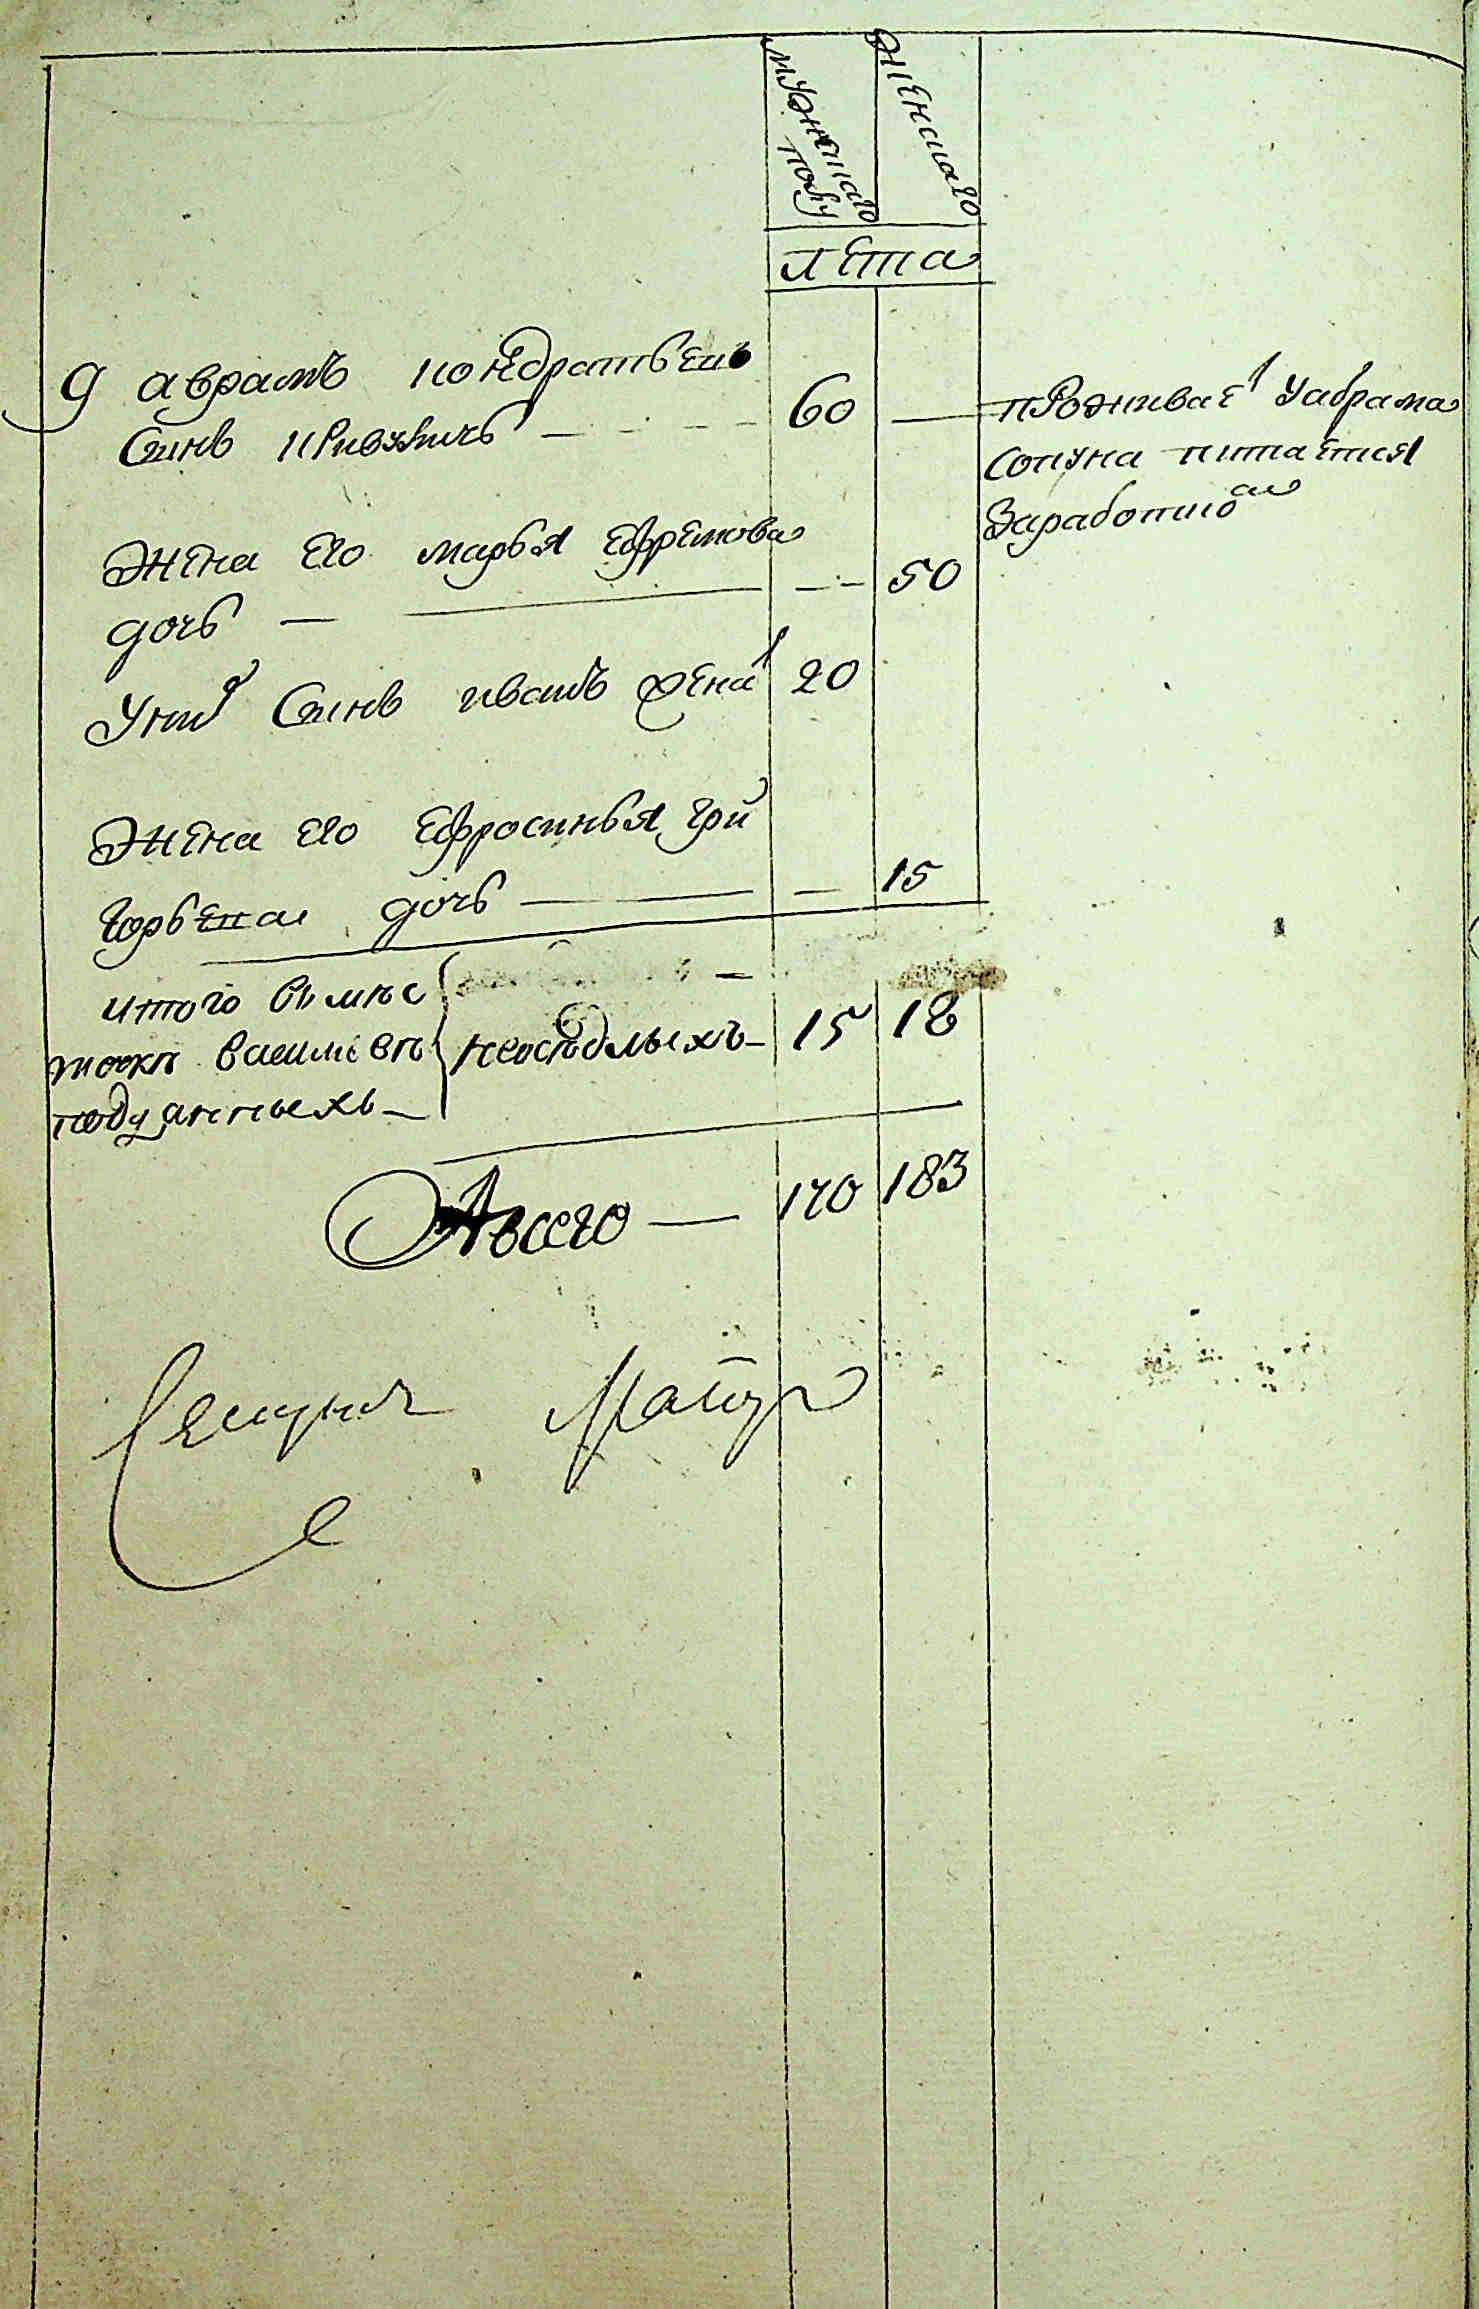 мужескаго полу
женскаго
лета
9 аврамъ кондратьевъ
сынъ
60
проживаеть у абрама
сопуна питается
заработкомъ
жена его марья ефремова
дочь
50
у них сынъ иванъ женатъ
20
жена его ефросинья гри
горьева дочь
15
итого въ мѣс
течкѣ василевѣ
подушныхъ
неосѣдлыхъ
15
18
А всего
170
183